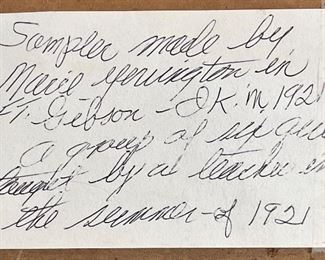 Sampler made by
Marie Yerrington in
Ft. Gibson - I.K.M. 192
a group of six
taught by a teacher in
the summer of 1921